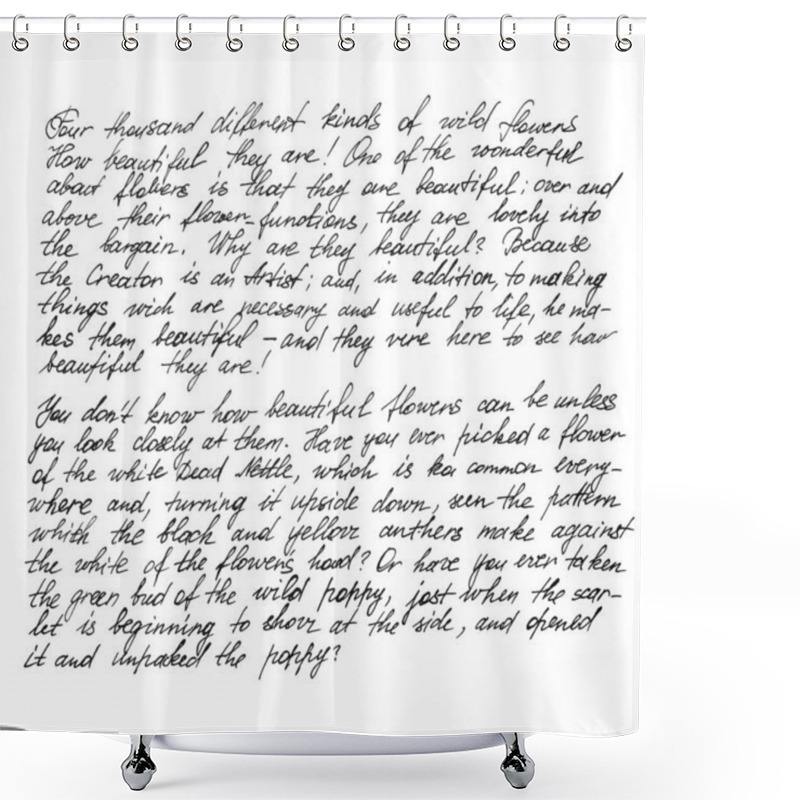 Four thousand different kinds of wild flowers
How beautiful they are! One of the wonderful
about flowers is that they are beautiful; over and
above their flower-functions, they are lovely into
the bargain. Why are they beautiful? Because
the Creator is an Artist; and, in addition, to making
things wich are necessary and useful to life, he ma-
kes them beautiful – and they vere here to see how
beautiful they are!
You don't know how beautiful flowers can be unless
you look closely at them. Have you ever picked a flower
of the white Dead Nettle, which is common every-
where and, turning it upside down, seen the pattern
which the black and yellow anthers make against
the white of the flowers hood? Or have you ever taken
the green bud of the wild poppy, just when the scar-
let is beginning to show at the side, and opened
it and unpacked the poppy?